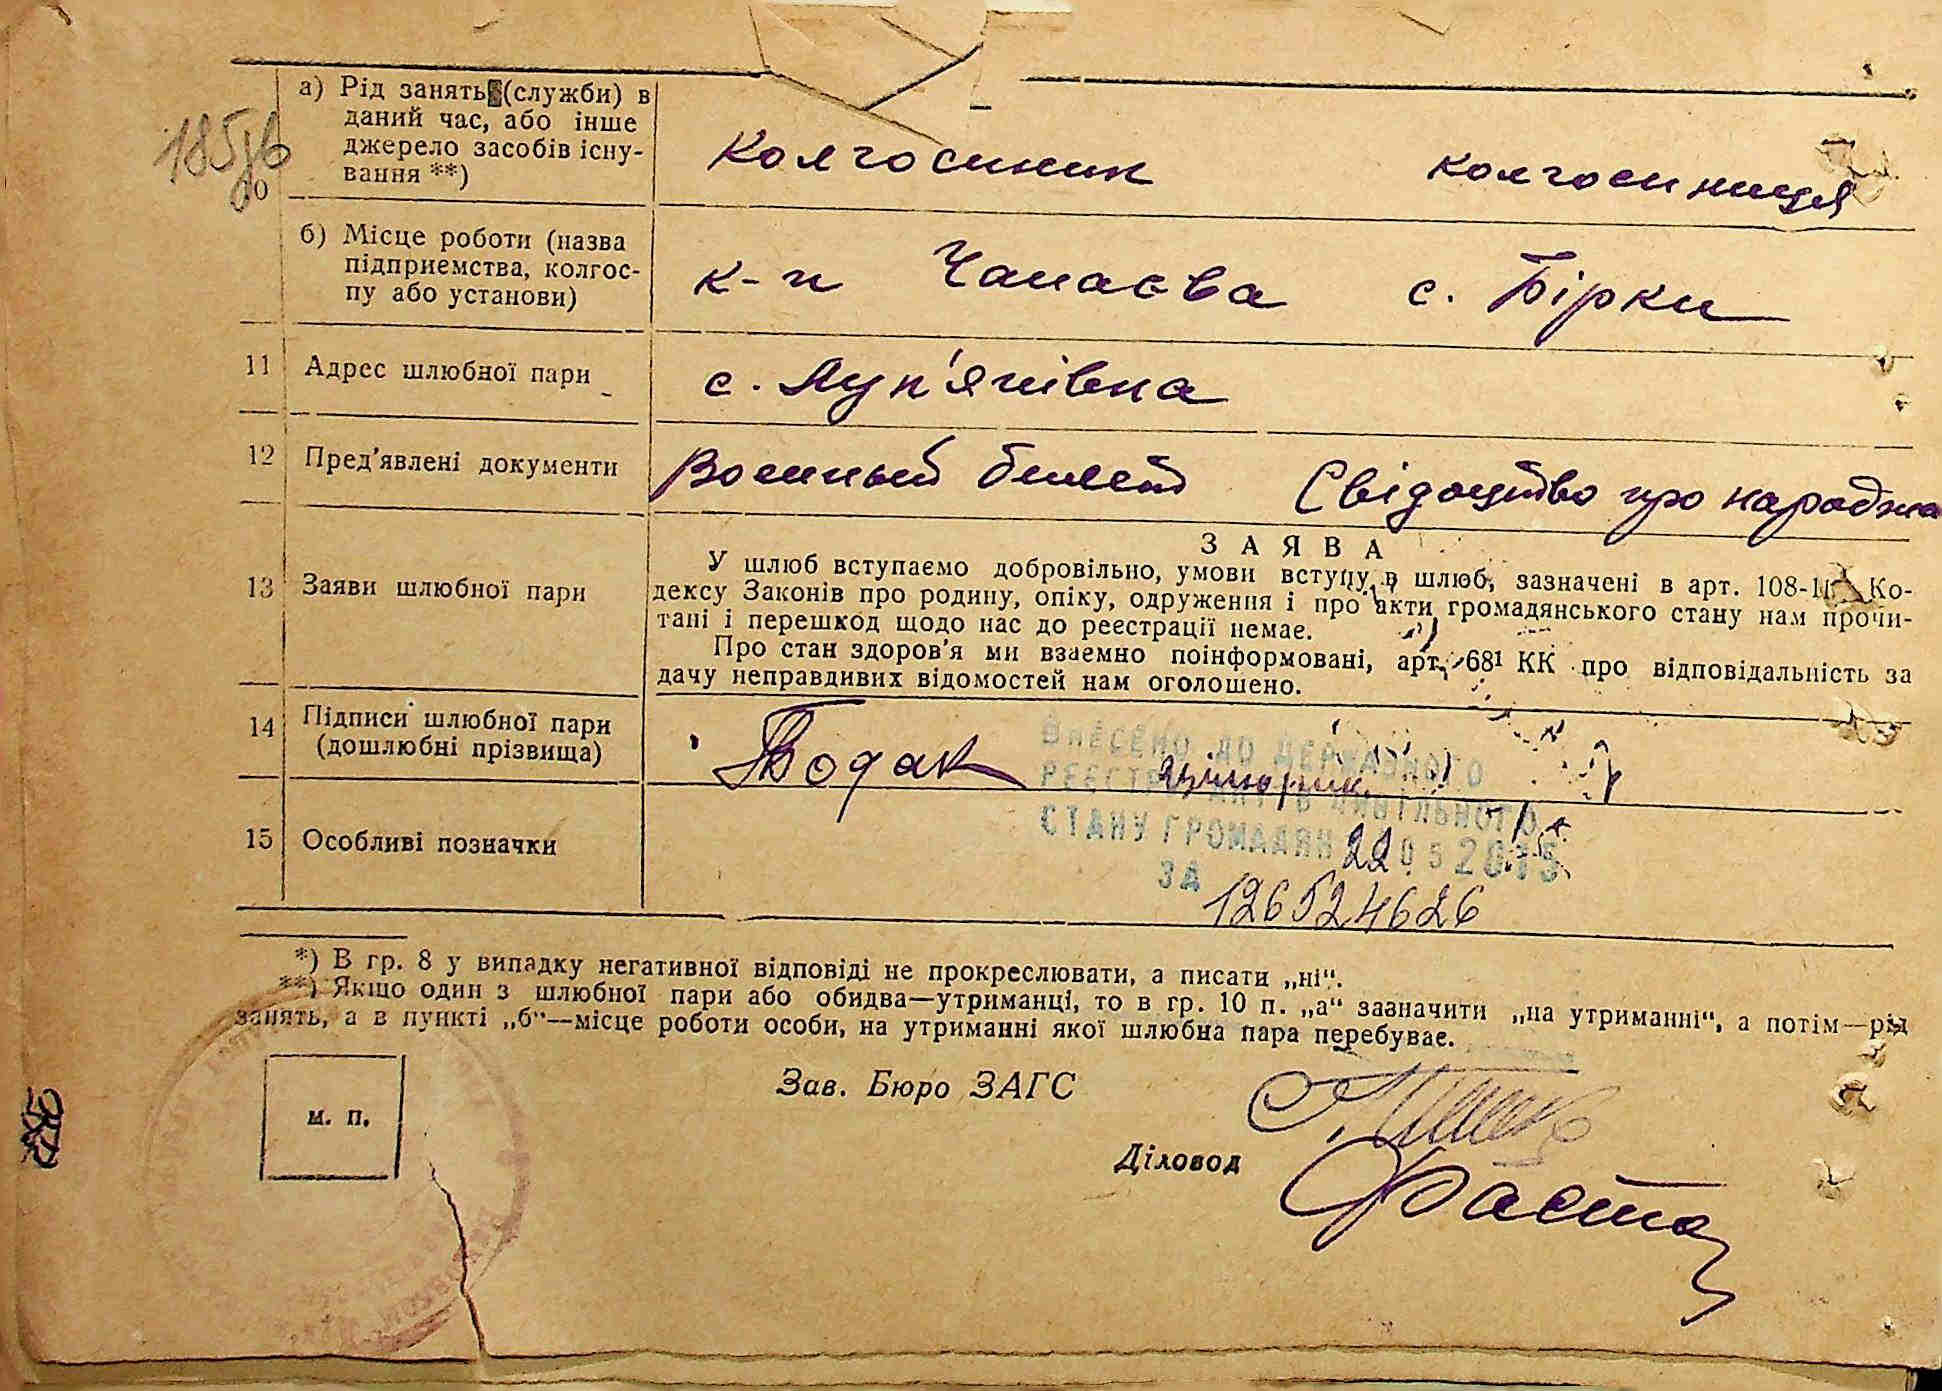 185 зв
10
а) Рід занять (служби) в
даний час, або інше
джерело засобів існу-
вання **)
Колгоспник колгоспниця
б) Місце роботи (назва
підприємства, колгос-
пу або установи)
к-п Чапаєва с. Бірки
11 Адрес шлюбної пари
с. Луп'янівна
12 Пред'явлені документи
Военный билет Свідоцтво про народже
13 Заяви шлюбної пари
ЗАЯВА
У шлюб вступаємо добровільно, умови вступу в шлюб, зазначені в арт. 108-11 Ко-
дексу Законів про родину, опіку, одруження і про акти громадянського стану нам прочи-
тані і перешкод щодо нас до реєстрації немає.
Про стан здоров'я ми взаємно поінформовані, арт. 68¹ КК про відповідальність за
дачу неправдивих відомостей нам оголошено.
14 Підписи шлюбної пари
(дошлюбні прізвища)
Бодак
ВНЕСЕНО ДО ДЕРЖАВНОГО
РЕЄСТРУ АКТІВ ЦИВІЛЬНОГО
СТАНУ ГРОМАДЯН 22 05 2015
ЗА 126524626
15 Особливі позначки
*) В гр. 8 у випадку негативної відповіді не прокреслювати, а писати „ні".
**) Якщо один з шлюбної пари або обидва—утриманці, то в гр. 10 п. „а" зазначити „на утриманні", а потім—рід
занять, а в пункті „б"—місце роботи особи, на утриманні якої шлюбна пара перебуває.
м. п.
Зав. Бюро ЗАГС
Діловод